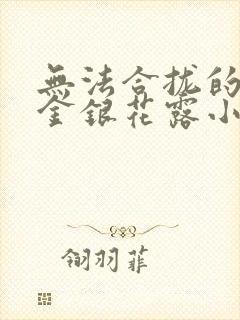 無法合拢的
金銀花露小
翎羽菲